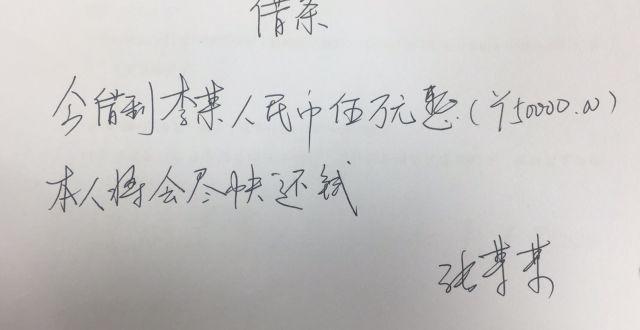 借条
今借到李某人民币伍万元整(¥50000.00)
本人将会尽快还钱
张某某